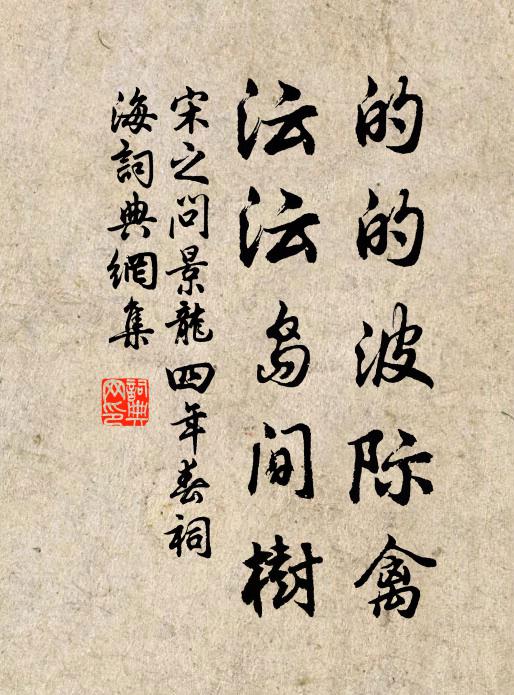 的的波际禽
沄沄岛间樹
宋之问景龍四年春祠
海詞典網集
詞典
网印